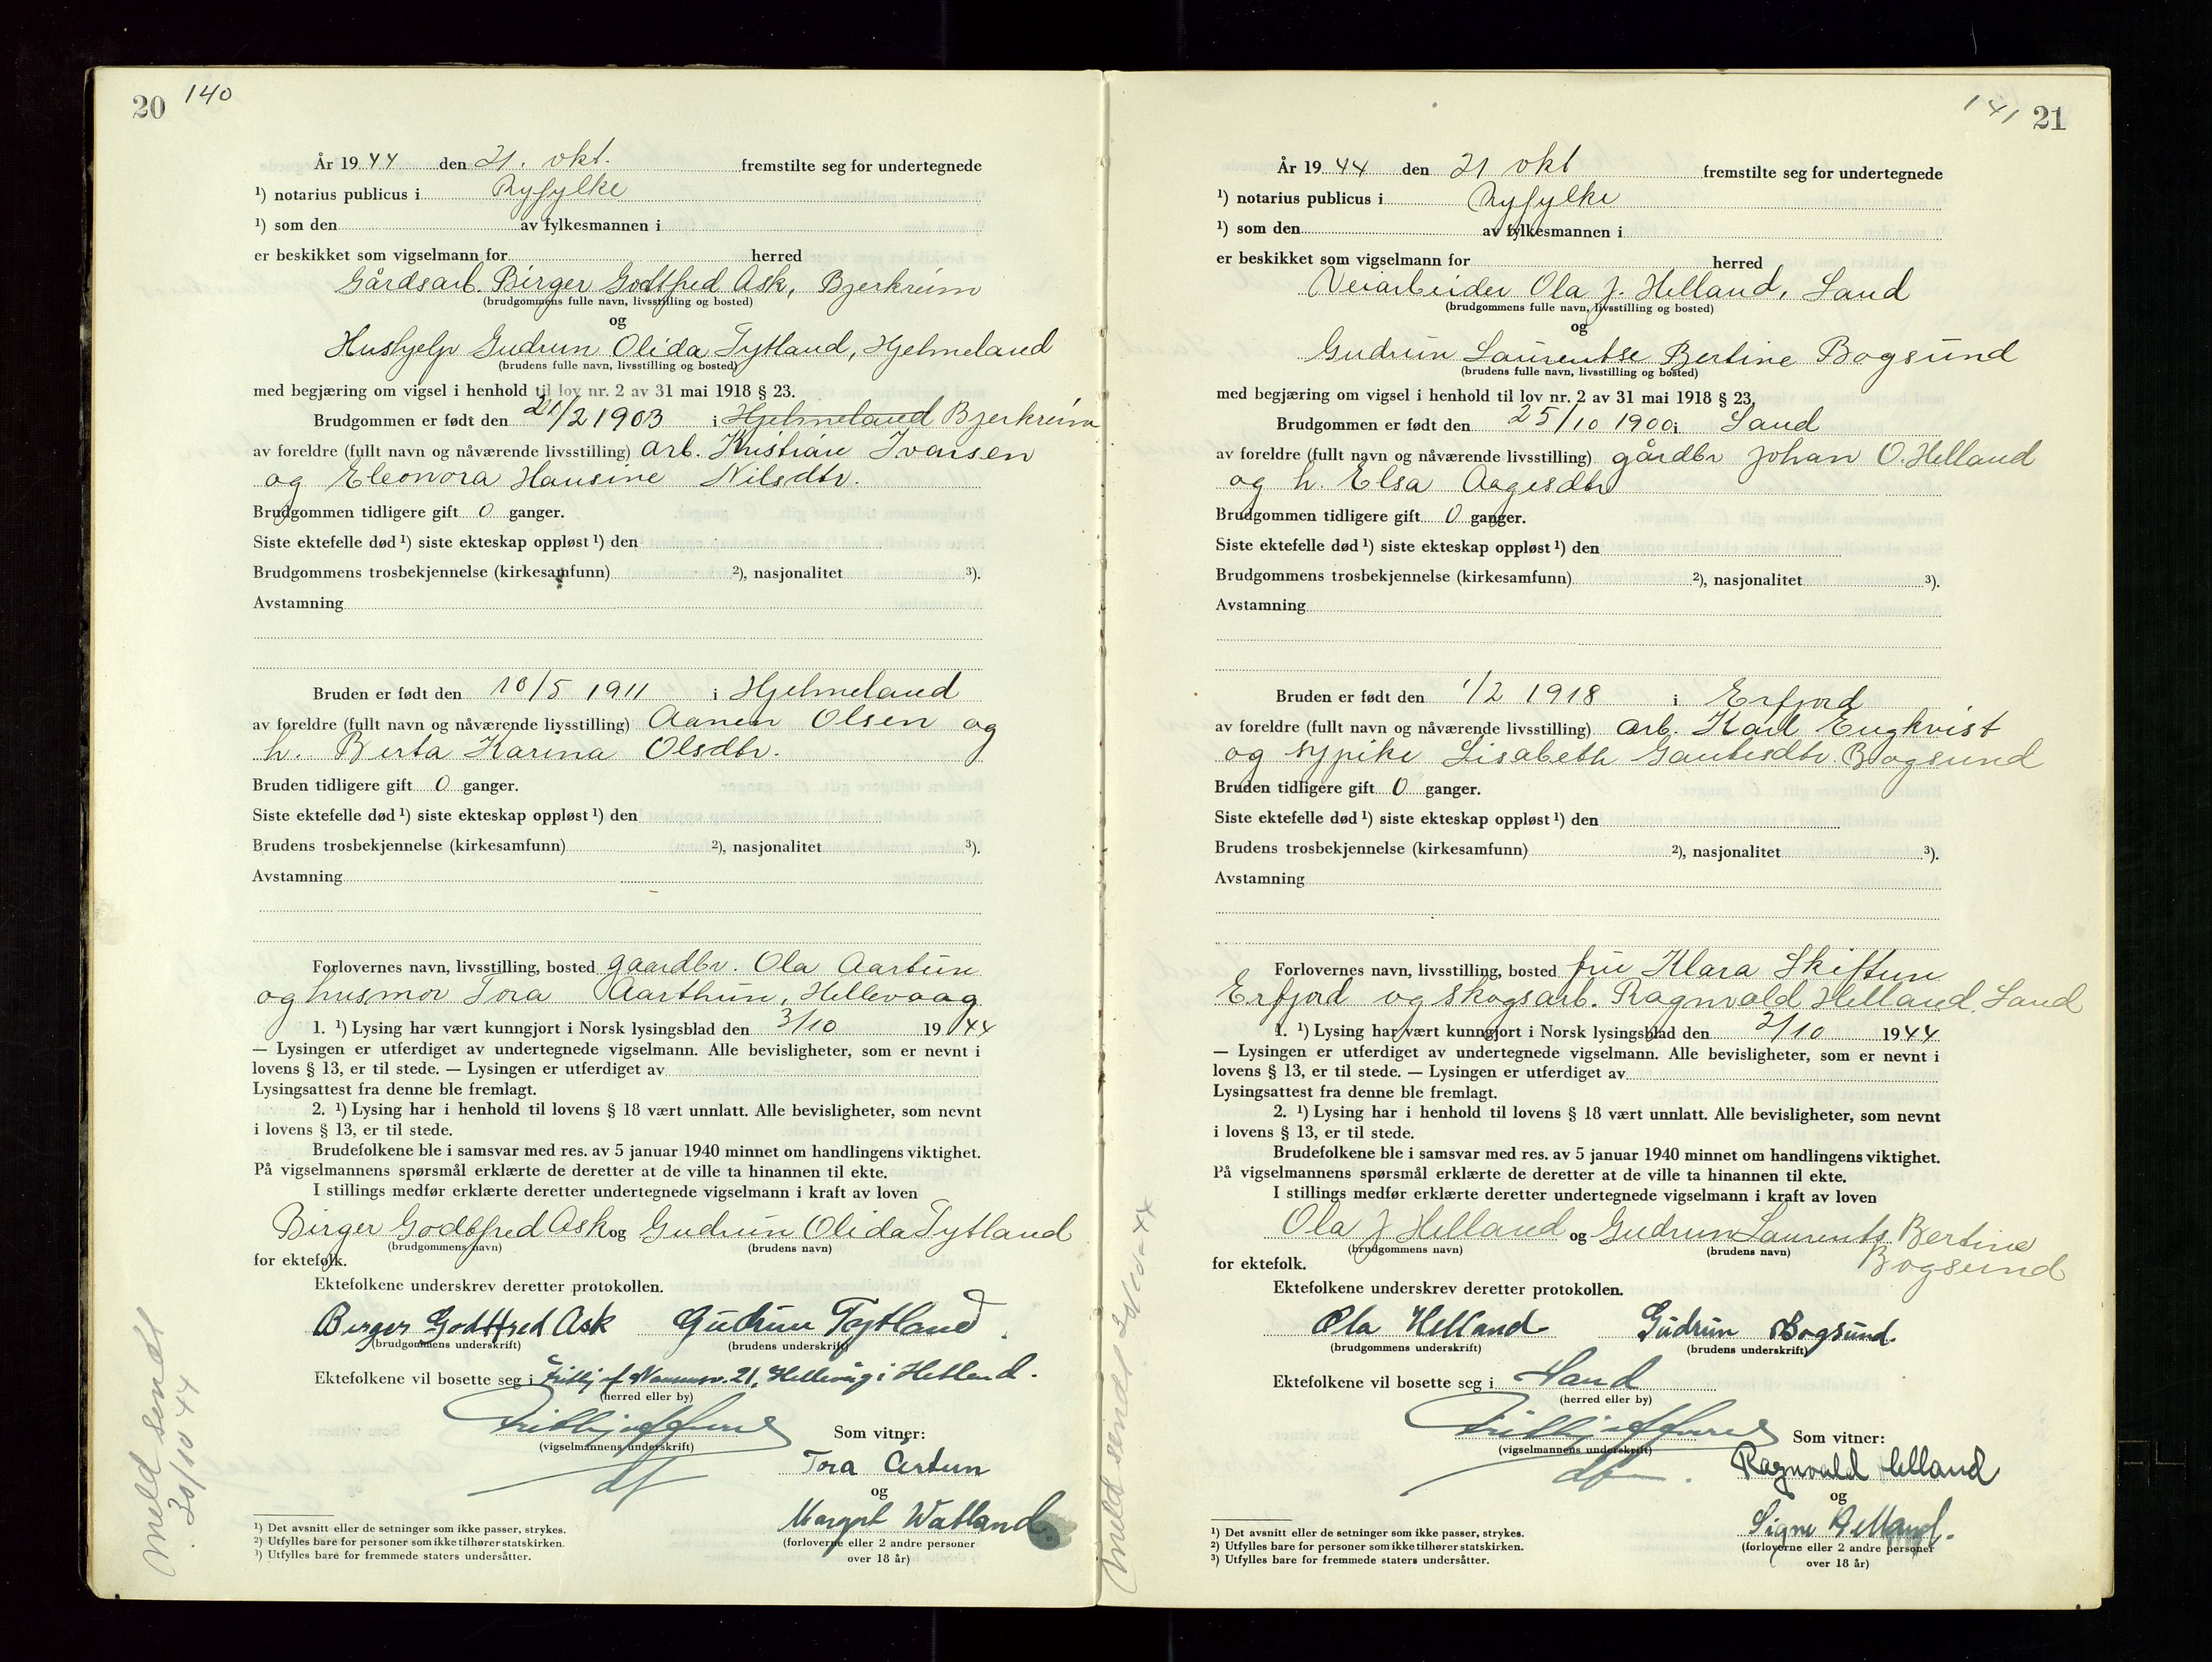 20 140
År 1944 den 21. okt. fremstilte seg for undertegnede
¹) notarius publicus i Ryfylke
¹) som den av fylkesmannen i
er beskikket som vigselmann for herred
Gårdsarb. Birger Godtfred Ask, Bjerkreim
(brudgommens fulle navn, livsstilling og bosted)
og
Hushjelp Gudrun Olida Tytland, Hjelmeland
(brudens fulle navn, livsstilling og bosted)
med begjæring om vigsel i henhold til lov nr. 2 av 31 mai 1918 § 23.
Brudgommen er født den 21/2 1903 i Hjelmeland Bjerkreim
av foreldre (fullt navn og nåværende livsstilling) arb. Kristian Ivarsen
og Eleonora Hansine Nilsdtr.
Brudgommen tidligere gift 0 ganger.
Siste ektefelle død ¹) siste ekteskap oppløst ¹) den
Brudgommens trosbekjennelse (kirkesamfunn) ²), nasjonalitet ³).
Avstamning
Bruden er født den 10/5 1911 i Hjelmeland
av foreldre (fullt navn og nåværende livsstilling) Aanen Olsen og
h. Berta Karina Olsdtr.
Bruden tidligere gift 0 ganger.
Siste ektefelle død ¹) siste ekteskap oppløst ¹) den
Brudens trosbekjennelse (kirkesamfunn) ²), nasjonalitet ³).
Avstamning
Forlovernes navn, livsstilling, bosted gaardbr. Ola Aartun
og husmor Tora Aarthun, Hellevaag
1. ¹) Lysing har vært kunngjort i Norsk lysingsblad den 3/10 1944
— Lysingen er utferdiget av undertegnede vigselmann. Alle bevisligheter, som er nevnt i
lovens § 13, er til stede. — Lysingen er utferdiget av
Lysingsattest fra denne ble fremlagt.
2. ¹) Lysing har i henhold til lovens § 18 vært unnlatt. Alle bevisligheter, som nevnt
i lovens § 13, er til stede.
Brudefolkene ble i samsvar med res. av 5 januar 1940 minnet om handlingens viktighet.
På vigselmannens spørsmål erklærte de deretter at de ville ta hinannen til ekte.
I stillings medfør erklærte deretter undertegnede vigselmann i kraft av loven
Birger Godtfred Ask og Gudrun Olida Tytland
(brudgommens navn) (brudens navn)
for ektefolk.
Ektefolkene underskrev deretter protokollen.
Birger Godtfred Ask Gudrun Tytland.
(brudgommens underskrift) (brudens underskrift)
Ektefolkene vil bosette seg i 21, Hellevåg i Hetland.
(herred eller by)
(vigselmannens underskrift) Som vitner:
Tora Årtun
og
Margot Watland.
(forloverne eller 2 andre personer
over 18 år)
¹) Det avsnitt eller de setninger som ikke passer, strykes.
²) Utfylles bare for personer som ikke tilhører statskirken.
³) Utfylles bare for fremmede staters undersåtter.
Meld sendt
30/10 44
141 21
År 1944 den 21 okt fremstilte seg for undertegnede
¹) notarius publicus i Ryfylke
¹) som den av fylkesmannen i
er beskikket som vigselmann for herred
Veiarbeider Ola J. Helland, Sand
(brudgommens fulle navn, livsstilling og bosted)
og
Gudrun Laurentse Bertine Bogsund
(brudens fulle navn, livsstilling og bosted)
med begjæring om vigsel i henhold til lov nr. 2 av 31 mai 1918 § 23.
Brudgommen er født den 25/10 1900 i Sand
av foreldre (fullt navn og nåværende livsstilling) gårdbr Johan O. Helland
og h. Elsa Aagesdtr
Brudgommen tidligere gift 0 ganger.
Siste ektefelle død ¹) siste ekteskap oppløst ¹) den
Brudgommens trosbekjennelse (kirkesamfunn) ²), nasjonalitet ³).
Avstamning
Bruden er født den 1/2 1918 i Erfjord
av foreldre (fullt navn og nåværende livsstilling) arb. Karl Engkvist
og sypike Lisabeth Gautesdtr. Bogsund
Bruden tidligere gift 0 ganger.
Siste ektefelle død ¹) siste ekteskap oppløst ¹) den
Brudens trosbekjennelse (kirkesamfunn) ²), nasjonalitet ³).
Avstamning
Forlovernes navn, livsstilling, bosted fru Klara Skiftun
Erfjord og skogsarb. Ragnvald Helland, Sand
1. ¹) Lysing har vært kunngjort i Norsk lysingsblad den 3/10 1944
— Lysingen er utferdiget av undertegnede vigselmann. Alle bevisligheter, som er nevnt i
lovens § 13, er til stede. — Lysingen er utferdiget av
Lysingsattest fra denne ble fremlagt.
2. ¹) Lysing har i henhold til lovens § 18 vært unnlatt. Alle bevisligheter, som nevnt
i lovens § 13, er til stede.
Brudefolkene ble i samsvar med res. av 5 januar 1940 minnet om handlingens viktighet.
På vigselmannens spørsmål erklærte de deretter at de ville ta hinannen til ekte.
I stillings medfør erklærte deretter undertegnede vigselmann i kraft av loven
Ola J Helland og Gudrun Laurents. Bertine
Bogsund
(brudgommens navn) (brudens navn)
for ektefolk.
Ektefolkene underskrev deretter protokollen.
Ola Helland Gudrun Bogsund.
(brudgommens underskrift) (brudens underskrift)
Ektefolkene vil bosette seg i Sand
(herred eller by)
(vigselmannens underskrift) Som vitner:
Ragnvald Helland
og
Signe Helland.
(forloverne eller 2 andre personer
over 18 år)
¹) Det avsnitt eller de setninger som ikke passer, strykes.
²) Utfylles bare for personer som ikke tilhører statskirken.
³) Utfylles bare for fremmede staters undersåtter.
Meld sendt 30/10-44